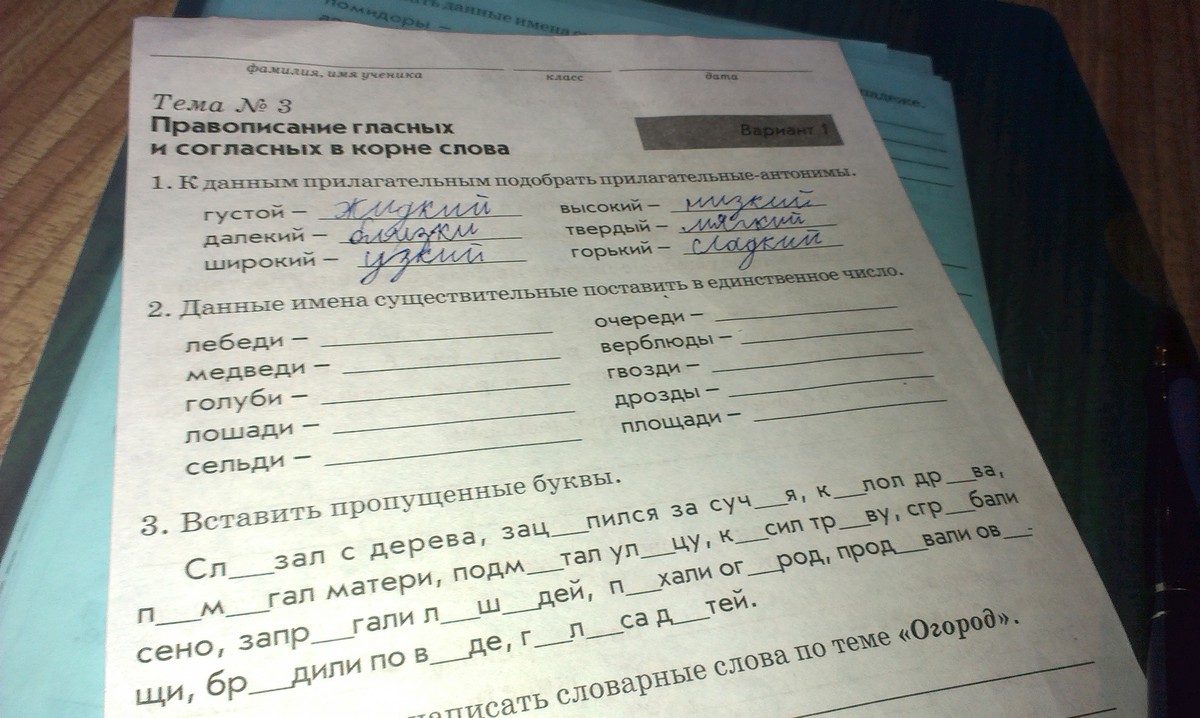 помидоры –
данные имена
падеже.
фамилия, имя ученика класс дата
Тема № 3
Правописание гласных
и согласных в корне слова
Вариант 1
1. К данным прилагательным подобрать прилагательные-антонимы.
густой – жидкий высокий – низкий
далекий – близки твердый – мягкий
широкий – узкий горький – сладкий
2. Данные имена существительные поставить в единственное число.
лебеди – ___ очереди – ___
медведи – ___ верблюды – ___
голуби – ___ гвозди – ___
лошади – ___ дрозды – ___
сельди – ___ площади – ___
3. Вставить пропущенные буквы.
Сл__зал с дерева, зац__пился за суч__я, к__лол др__ва,
п__м__гал матери, подм__тал ул__цу, к__сил тр__ву, сгр__бали
сено, запр__гали л__ш__дей, п__хали ог__род, прод__вали ов__-
щи, бр__дили по в__де, г__л__са д__тей.
написать словарные слова по теме «Огород».